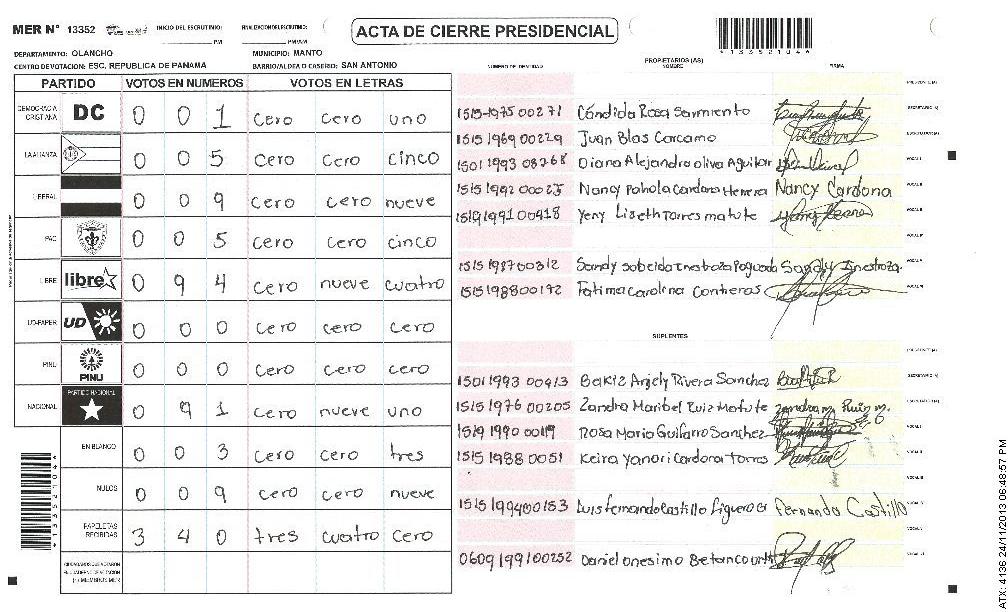 MER N° 13352 INICIO DEL ESCRUTINIO: PM FINALIZACION ESCRUTINIO: PM/AM
ACTA DE CIERRE PRESIDENCIAL
133521044
DEPARTAMENTO: OLANCHO MUNICIPIO: MANTO
CENTRO DE VOTACION: ESC. REPUBLICA DE PANAMA BARRIO/ALDEA O CASERIO: SAN ANTONIO
PARTIDO VOTOS EN NUMEROS VOTOS EN LETRAS
DEMOCRACIA CRISTIANA DC 0 0 1 cero cero uno
LA ALIANZA 0 0 5 cero cero cinco
LIBERAL 0 0 9 cero cero nueve
PAC 0 0 5 cero cero cinco
LIBRE libre 0 9 4 cero nueve cuatro
UD-FAPER UD 0 0 0 cero cero cero
PINU PINU 0 0 0 cero cero cero
NACIONAL PARTIDO NACIONAL 0 9 1 cero nueve uno
EN BLANCO 0 0 3 cero cero tres
NULOS 0 0 9 cero cero nueve
PAPELETAS RECIBIDAS 3 4 0 tres cuatro cero
CIUDADANOS QUE VOTARON
EN CUADERNO DE VOTACION
MIEMBROS MER
NUMERO DE IDENTIDAD PROPIETARIOS (AS) NOMBRE FIRMA
PRESIDENTE (A)
1515-1975 00271 Cándida Rosa Sarmiento SECRETARIO (A)
1515 1969 00229 Juan Blas Carcamo ESCRUTADOR (A)
1501 1993 03268 Diana Alejandra oliva Aguilar VOCAL I
1515 1992 00025 Nancy Pahola Cardona Herrera Nancy Cardona VOCAL II
1519 1991 00418 Yeny Lizeth Torres matute VOCAL III
VOCAL IV
1515 1987 00312 Sandy Sabeida Inestroza Poguada Sandy Inestroza VOCAL V
1515 1988 00172 Fatima Carolina Contreras VOCAL VI
SUPLENTES
PRESIDENTE (A)
1501 1993 00413 Bakiz Anjely Rivera Sanchez SECRETARIO (A)
1515 1976 00205 Zandra Maribel Ruiz Matute Zandra m. Ruiz m. ESCRUTADOR (A)
1519 1990 00119 Rosa Maria Guifarro Sanchez VOCAL I
1515 1988 0051 Keira Yanori Cardona Torres VOCAL II
VOCAL III
1515 1994 00153 Luis fernando castillo figueroa Fernando Castillo VOCAL IV
VOCAL V
0609 1991 00252 Daniel onesimo Betancourth VOCAL VI
133521044
ATX: 4136 24/11/2013 06:48:57 PM